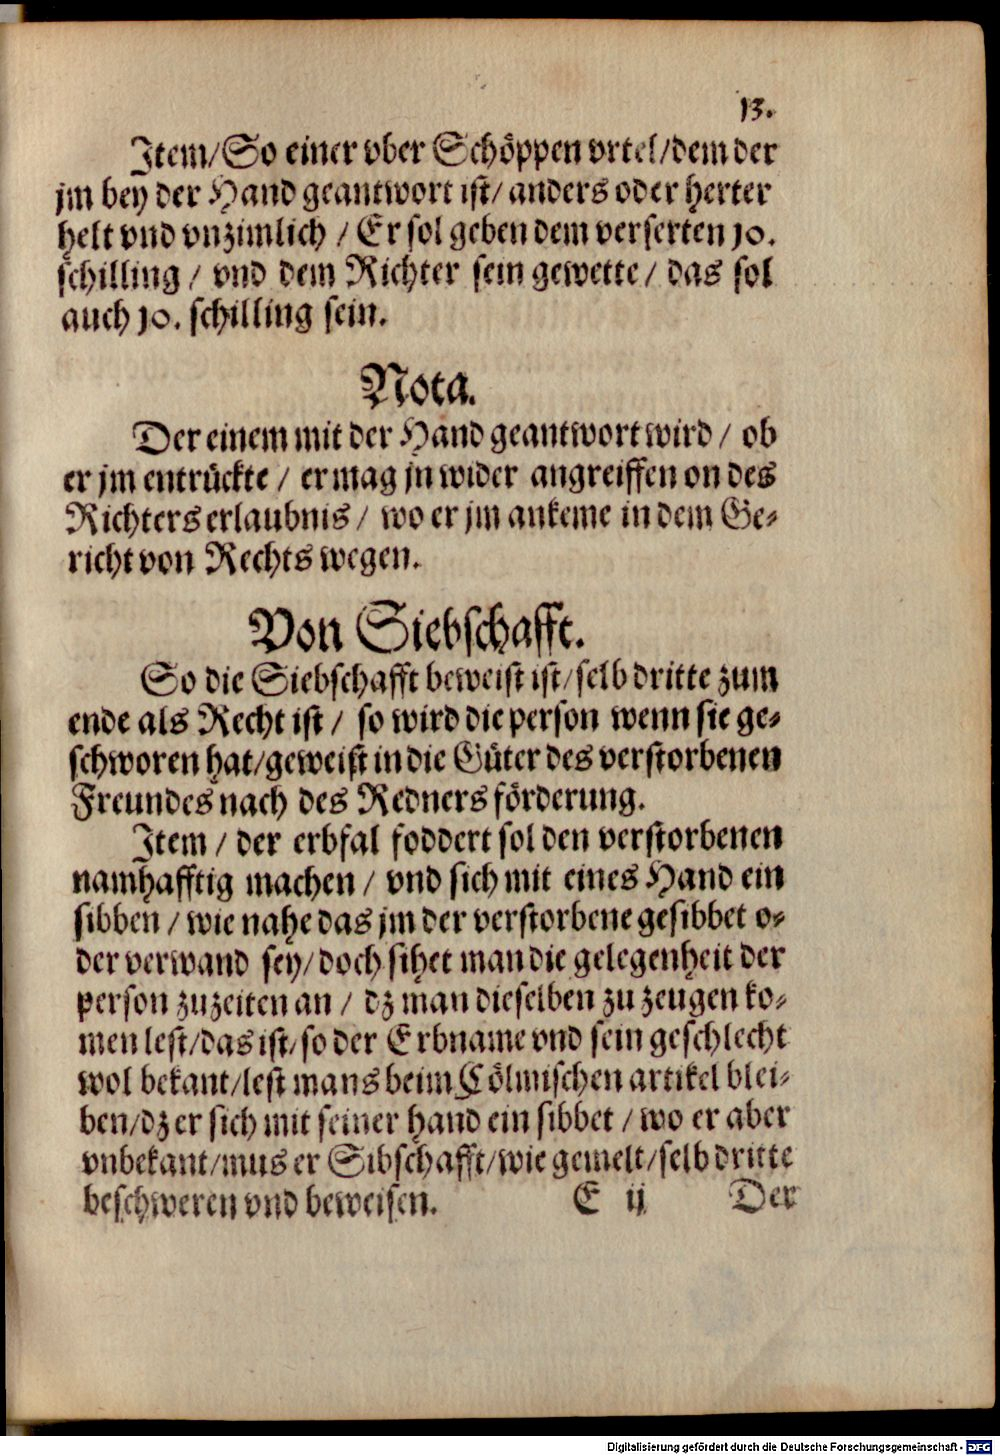 13.
Item/So einer vber Schöppen vrtel/dem der
jm bey der Hand geantwort ist/ anders oder herter
helt vnd vnzimlich / Er sol geben dem verserten 10.
schilling / vnd dem Richter sein gewette / das sol
auch 10. schilling sein.
Nota.
Der einem mit der Hand geantwort wird / ob
er jm entrückte / er mag jn wider angreiffen on des
Richters erlaubnis / wo er jm ankeme in dem Ge-
richt von Rechts wegen.
Von Siebschafft.
So die Siebschafft beweist ist/selb dritte zum
ende als Recht ist / so wird die person wenn sie ge-
schworen hat/geweist in die Güter des verstorbenen
Freundes nach des Redners förderung.
Item / der erbfal foddert sol den verstorbenen
namhafftig machen / vnd sich mit eines Hand ein
sibben / wie nahe das jm der verstorbene gesibbet o-
der verwand sey/doch sihet man die gelegenheit der
person zuzeiten an / dz man dieselben zu zeugen ko-
men lest/das ist/so der Erbname vnd sein geschlecht
wol bekant/lest mans beim Cölmischen artikel blei-
ben/dz er sich mit seiner hand ein sibbet / wo er aber
vnbekant/mus er Sibschafft/wie gemelt/selb dritte
beschweren vnd beweisen. E ij Der
Digitalisierung gefördert durch die Deutsche Forschungsgemeinschaft - DFG